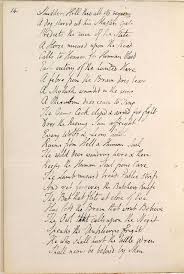 14
Shudders Hell thro all its regions
A dog starvd at his Masters Gate
Predicts the ruin of the State
A Horse misusd upon the Road
Calls to Heaven for Human blood
Each outcry of the hunted Hare
A fibre from the Brain does tear
A Skylark wounded in the wing
A Cherubim does cease to sing
The Game Cock clipd & armd for fight
Does the Rising Sun affright
Every Wolfs & Lions howl
Raises from Hell a Human Soul
The wild deer wandring here & there
Keeps the Human Soul from Care
The Lamb misusd breeds Public strife
And yet forgives the Butchers Knife
The Bat that flits at close of Eve
Has left the Brain that wont Believe
The Owl that calls upon the Night
Speaks the Unbelievers fright
He who shall hurt the little Wren
Shall never be belovd by Men